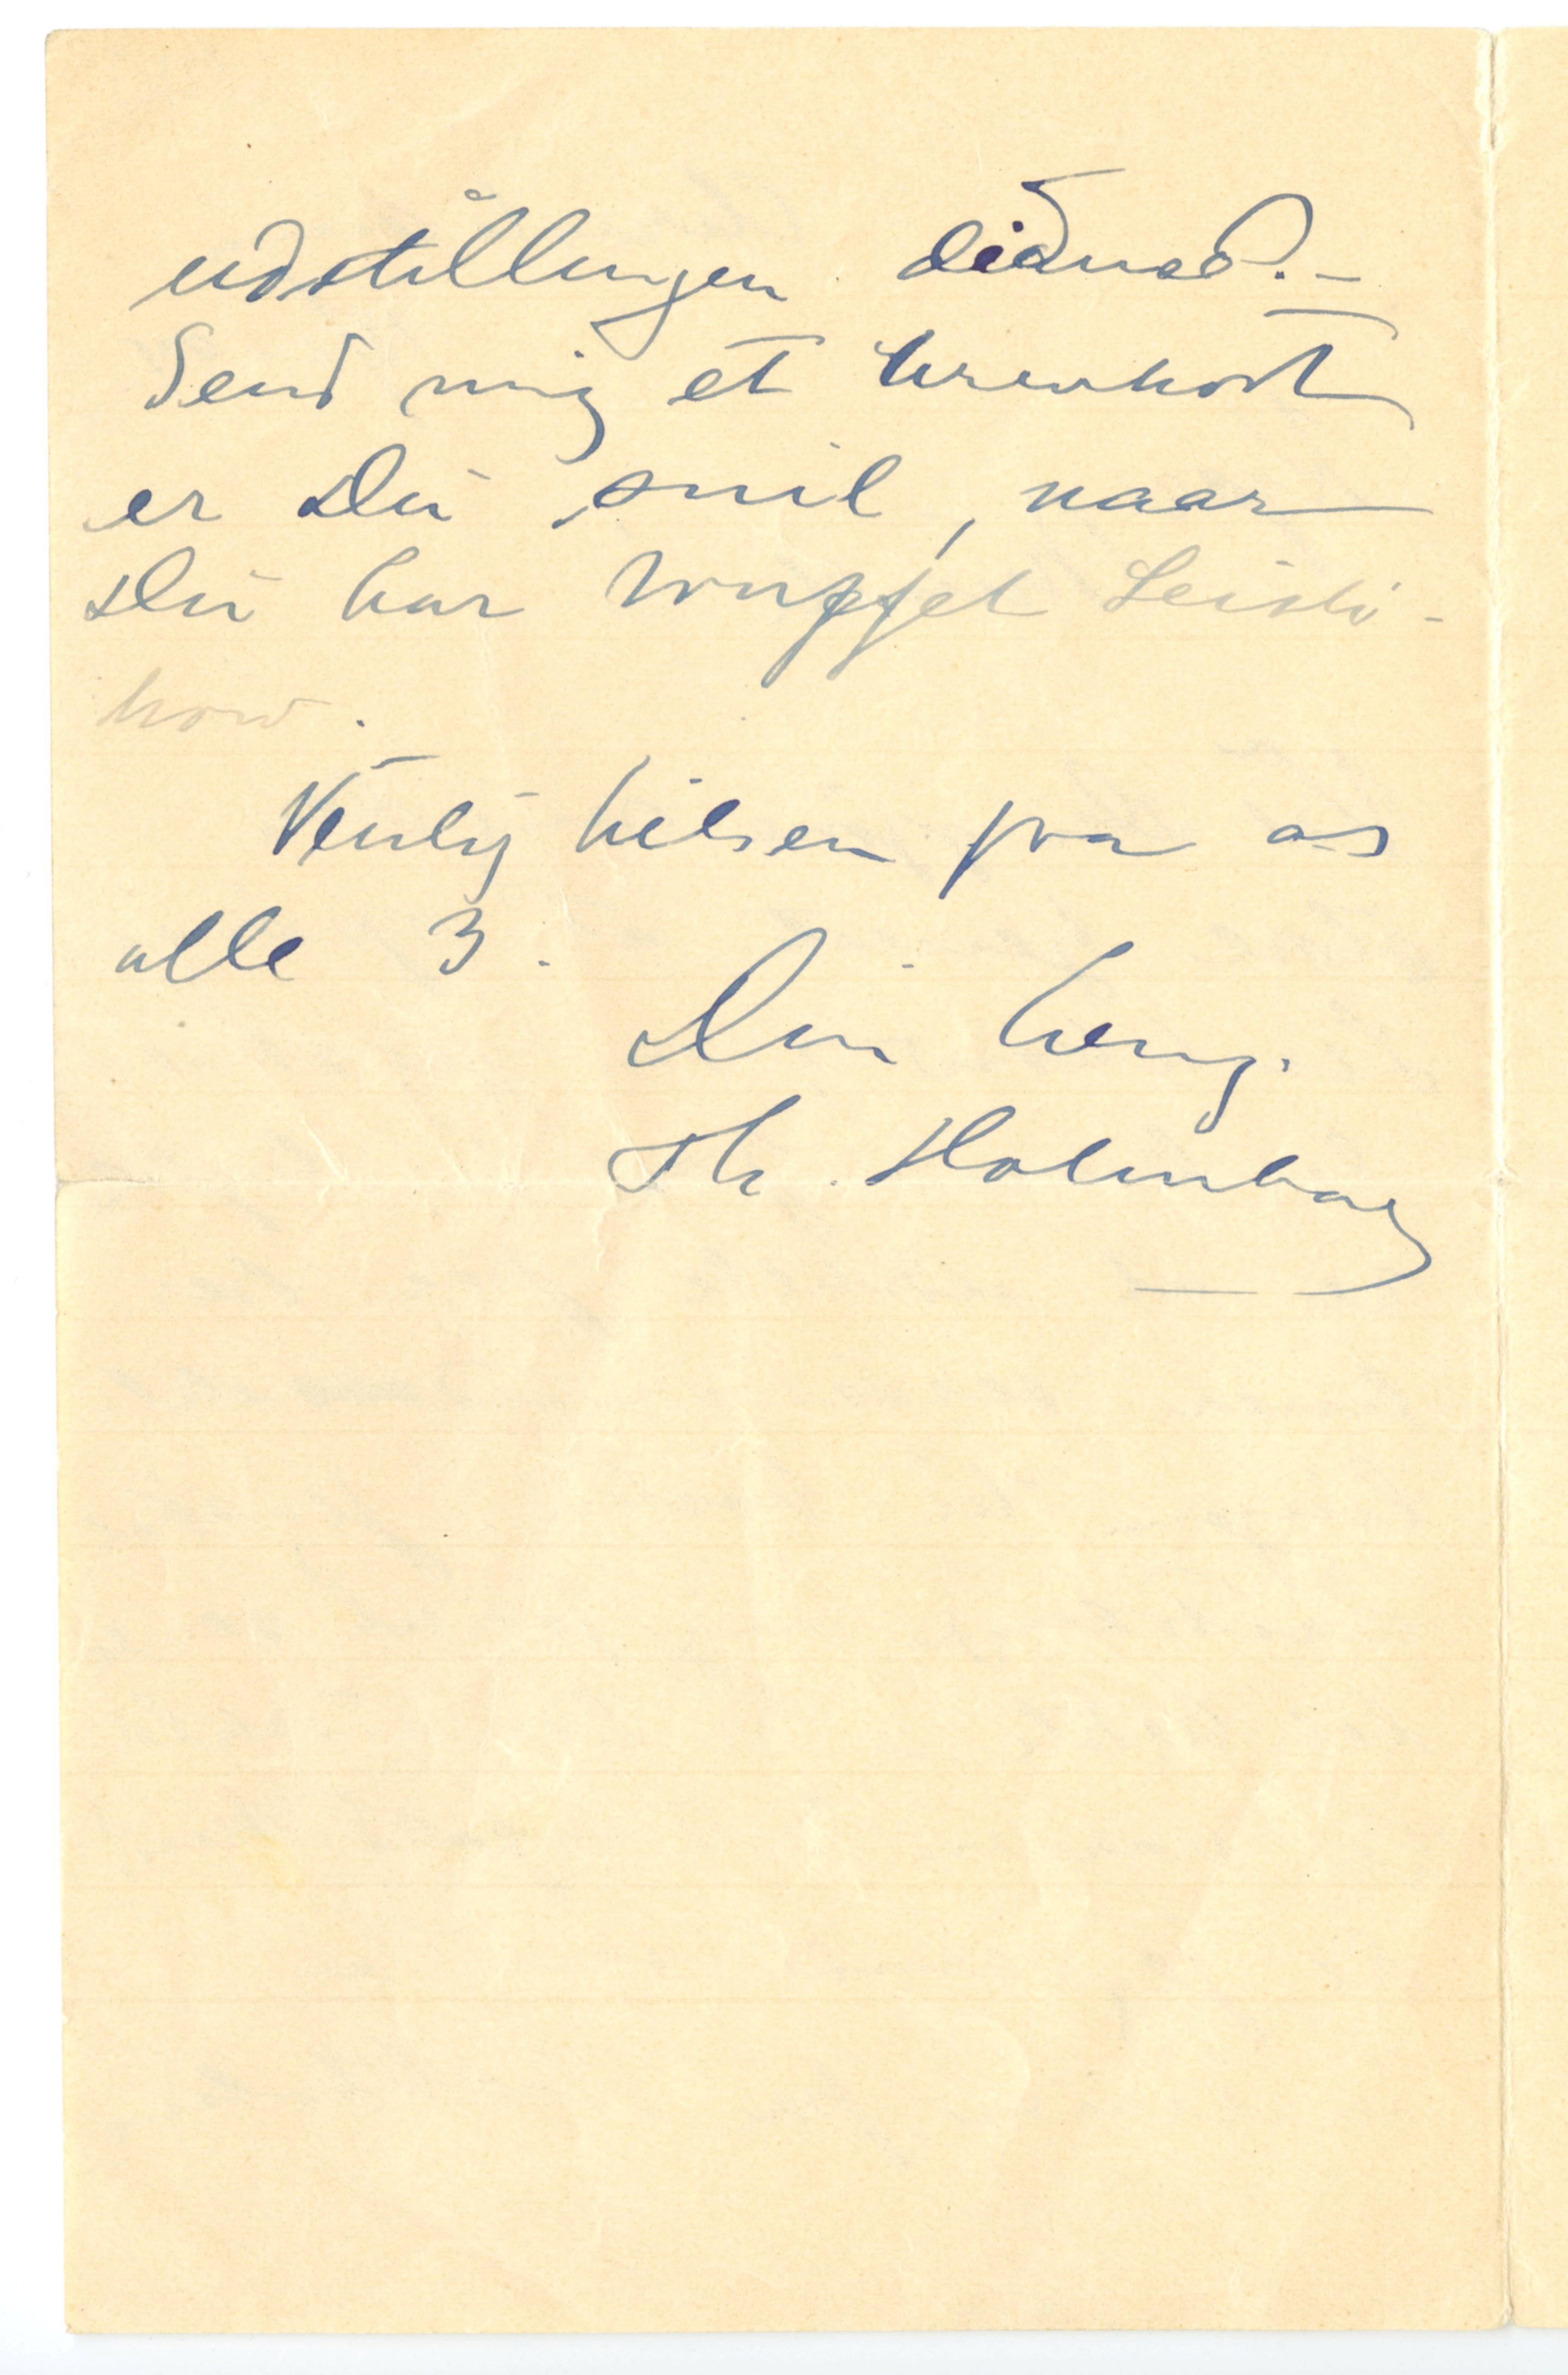 udstillingen didned. –
Send mig et brevkort
er Du snil, naar
Du har truffet Leisti-
kow.
Venlig hilsen fra os
alle 3.
Din heng.
Th. Holmboe